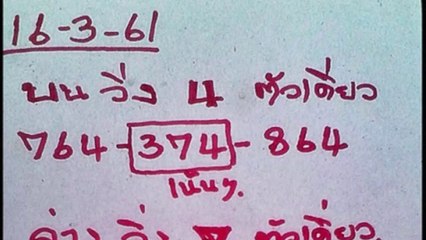 16-3-61
บน วิ่ง 4 ตัวเดียว
764-374-864
เน้นๆ
ล่าง วิ่ง ตัวเดียว